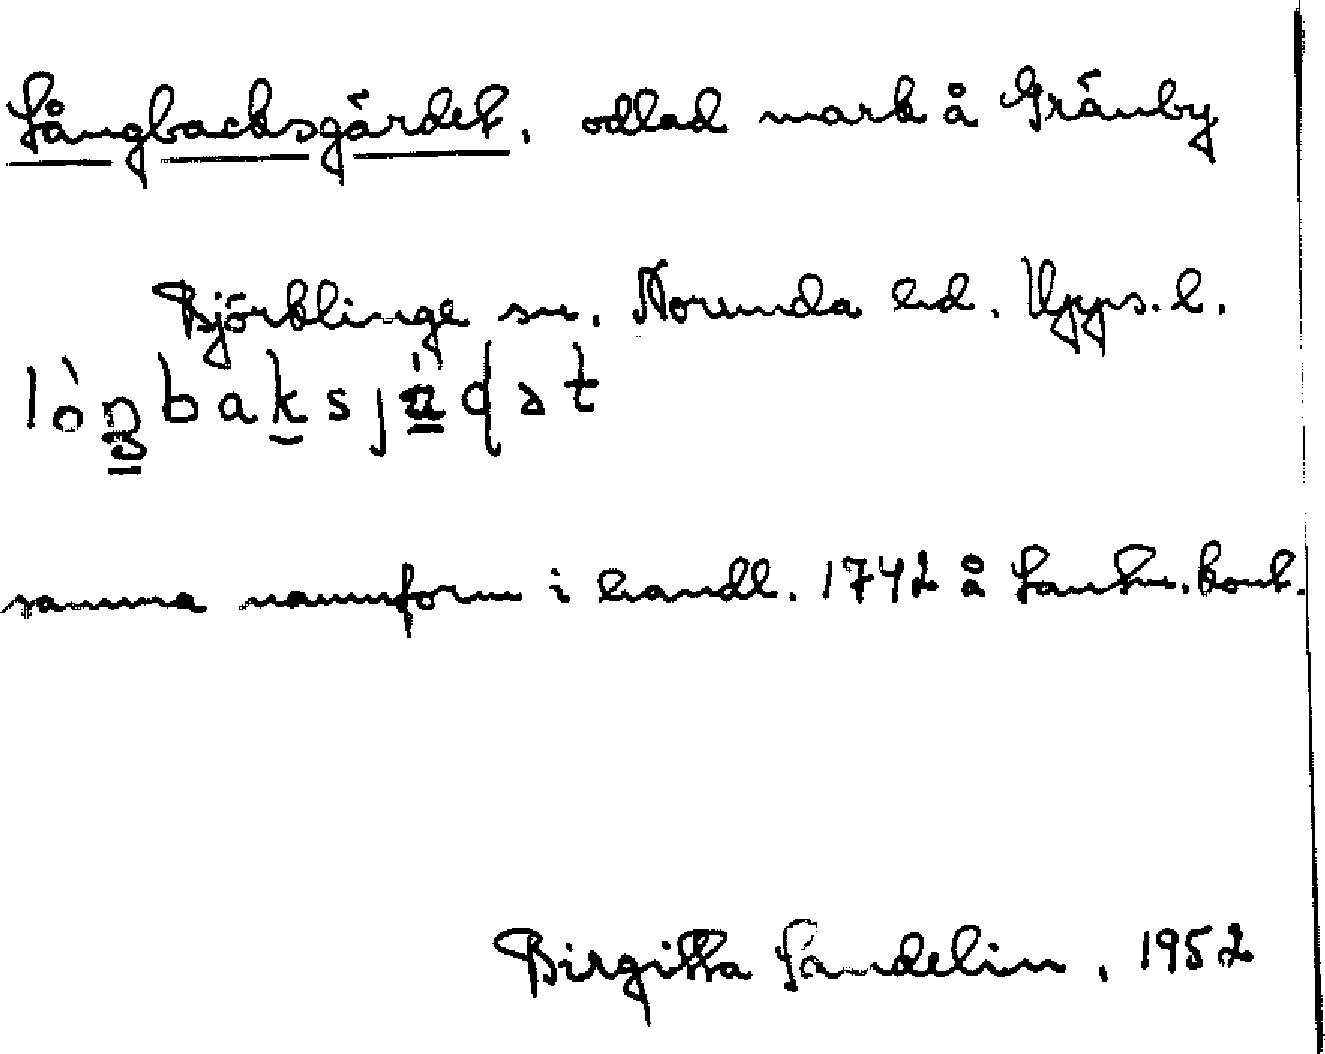 Långbacksgärdet, odlad mark å Gränby
Björklinge sn. Norunda hd. Upps. l.
samma namnform i handl. 1742 å Lantm. kont.
Birgitta Sandelin, 1952